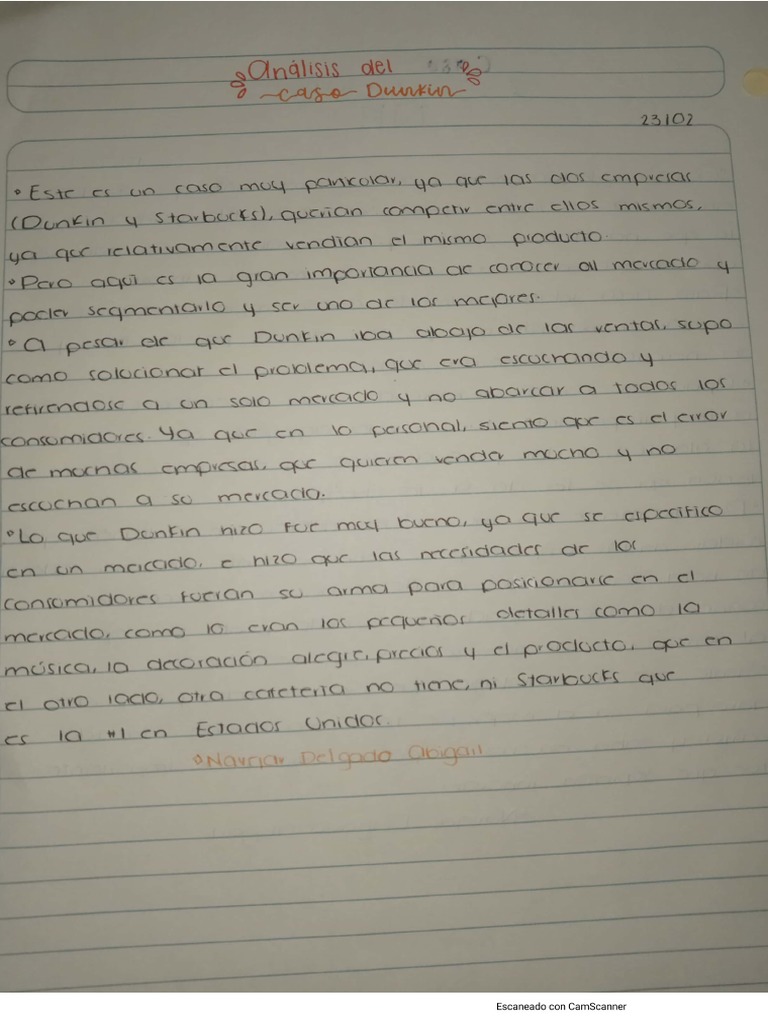 Análisis del
caso Dunkin
23/02
° Este es un caso muy particular, ya que las dos empresas
(Dunkin y Starbucks), querian competir entre ellos mismos,
ya que relativamente vendian el mismo producto.
° Pero aqui es la gran importancia de conocer al mercado y
poder segmentarlo y ser uno de los mejores.
° A pesar de que Dunkin iba abajo de las ventas, supo
como solucionar el problema, que era escuchando y
refiriendose a un solo mercado y no abarcar a todos los
consumidores. Ya que en lo personal, siento que es el error
de muchas empresas, que quieren vender mucho y no
escuchan a su mercado.
° Lo que Dunkin hizo fue muy bueno, ya que se especifico
en un mercado, e hizo que las necesidades de los
consumidores fueran su arma para posicionarse en el
mercado, como lo eran los pequeños detalles como la
música, la decoración alegre, precios y el producto, que en
el otro lado, otra cafeteria no tiene, ni Starbucks que
es la #1 en Estados Unidos.
Delgado Abigail
Escaneado con CamScanner